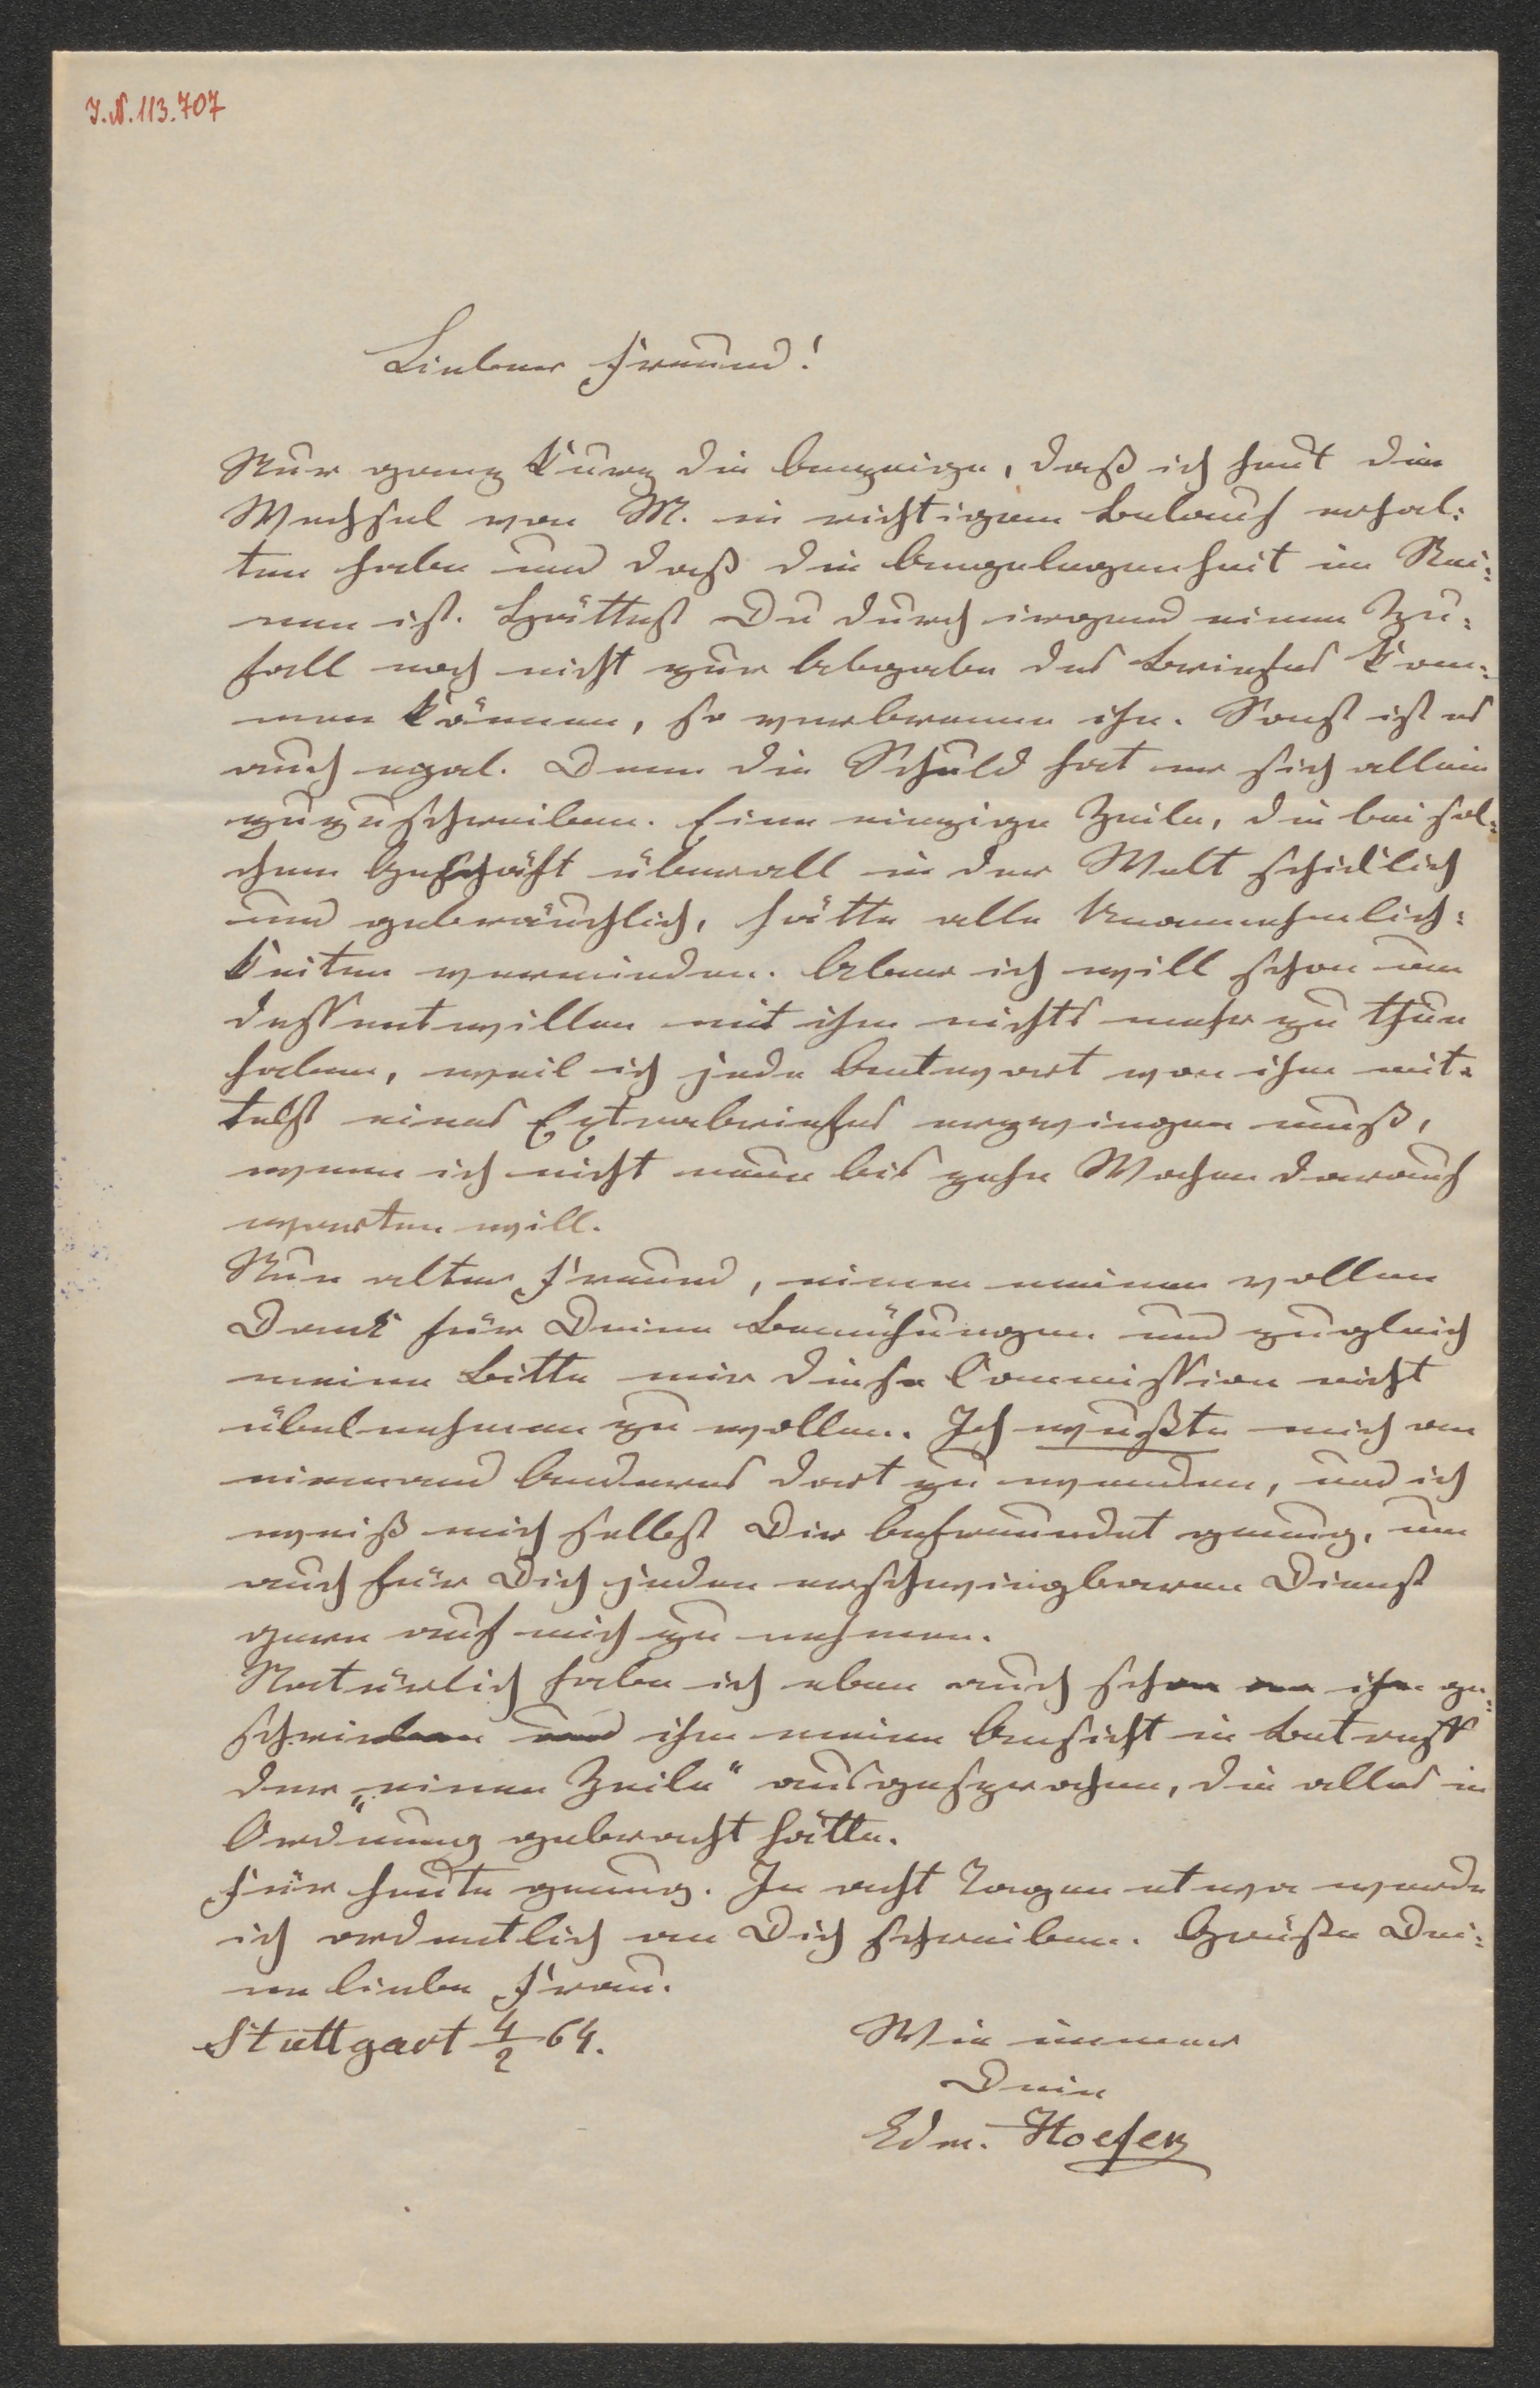 I.N. 113.707
Lieber Freund!
Nur ganz kurz die Anzeige, daß ich heut die
Wechsel von M. in richtigem Belauf erhal:
ten habe und daß die Angelegenheit im Rei:
nen ist. Hättest Du durch irgend einen Zu:
fall noch nicht zur Abgabe des Briefes kom:
men können, so verbrenne ihn. Sonst ist es
auch egal. Denn die Schuld hat er sich allein
zuzuschreiben. Eine einzige Zeile, die bei sol:
chem Geschäft überall in der Welt schicklich
und gebräuchlich, hätte alle Unannehmlich:
keiten vermieden. Aber ich will schon um
dessentwillen mit ihm nichts mehr zu thun
haben, weil ich jede Antwort von ihm mit:
telst eines Extrabriefes erzwingen muß,
wenn ich nicht neun bis zehn Wochen darauf
warten will.
Nun alter Freund, einen meinen vollen
Dank für Deine Bemühungen und zugleich
meine Bitte mir diese Commission nicht
übelnehmen zu wollen. Ich wußte mich an
niemand Anderes dort zu wenden, und ich
weiß mich selbst Dir befreundet genug, um
auch für Dich jeden erschwingbaren Dienst
gern auf mich zu nehmen.
Natürlich habe ich eben auch schon an ihn ge:
schrieben und ihm meine Ansicht in Betreff
der „einen Zeile“ ausgesprochen, die alles in
Ordnung gebracht hätte.
Für heute genug. In acht Tagen etwa werde
ich ordentlich an Dich schreiben. Grüße Dei:
ne liebe Frau.
Stuttgart 4/2 64.
Wie immer
Dein
Edm. Hoefer